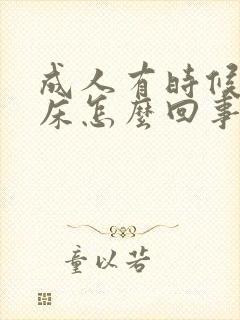 成人有時候
床怎麼回事
童以若